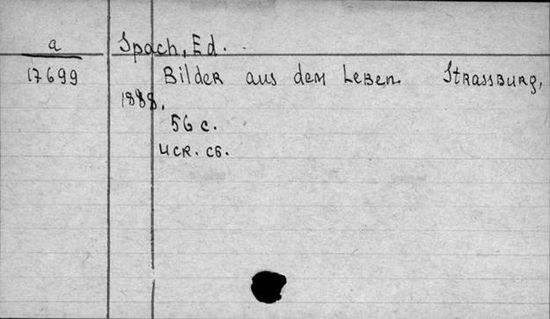 a
17699
Spach, Ed.
Bilder aus dem Leben. Strassburg,
1888.
56 c.
иск. сб.